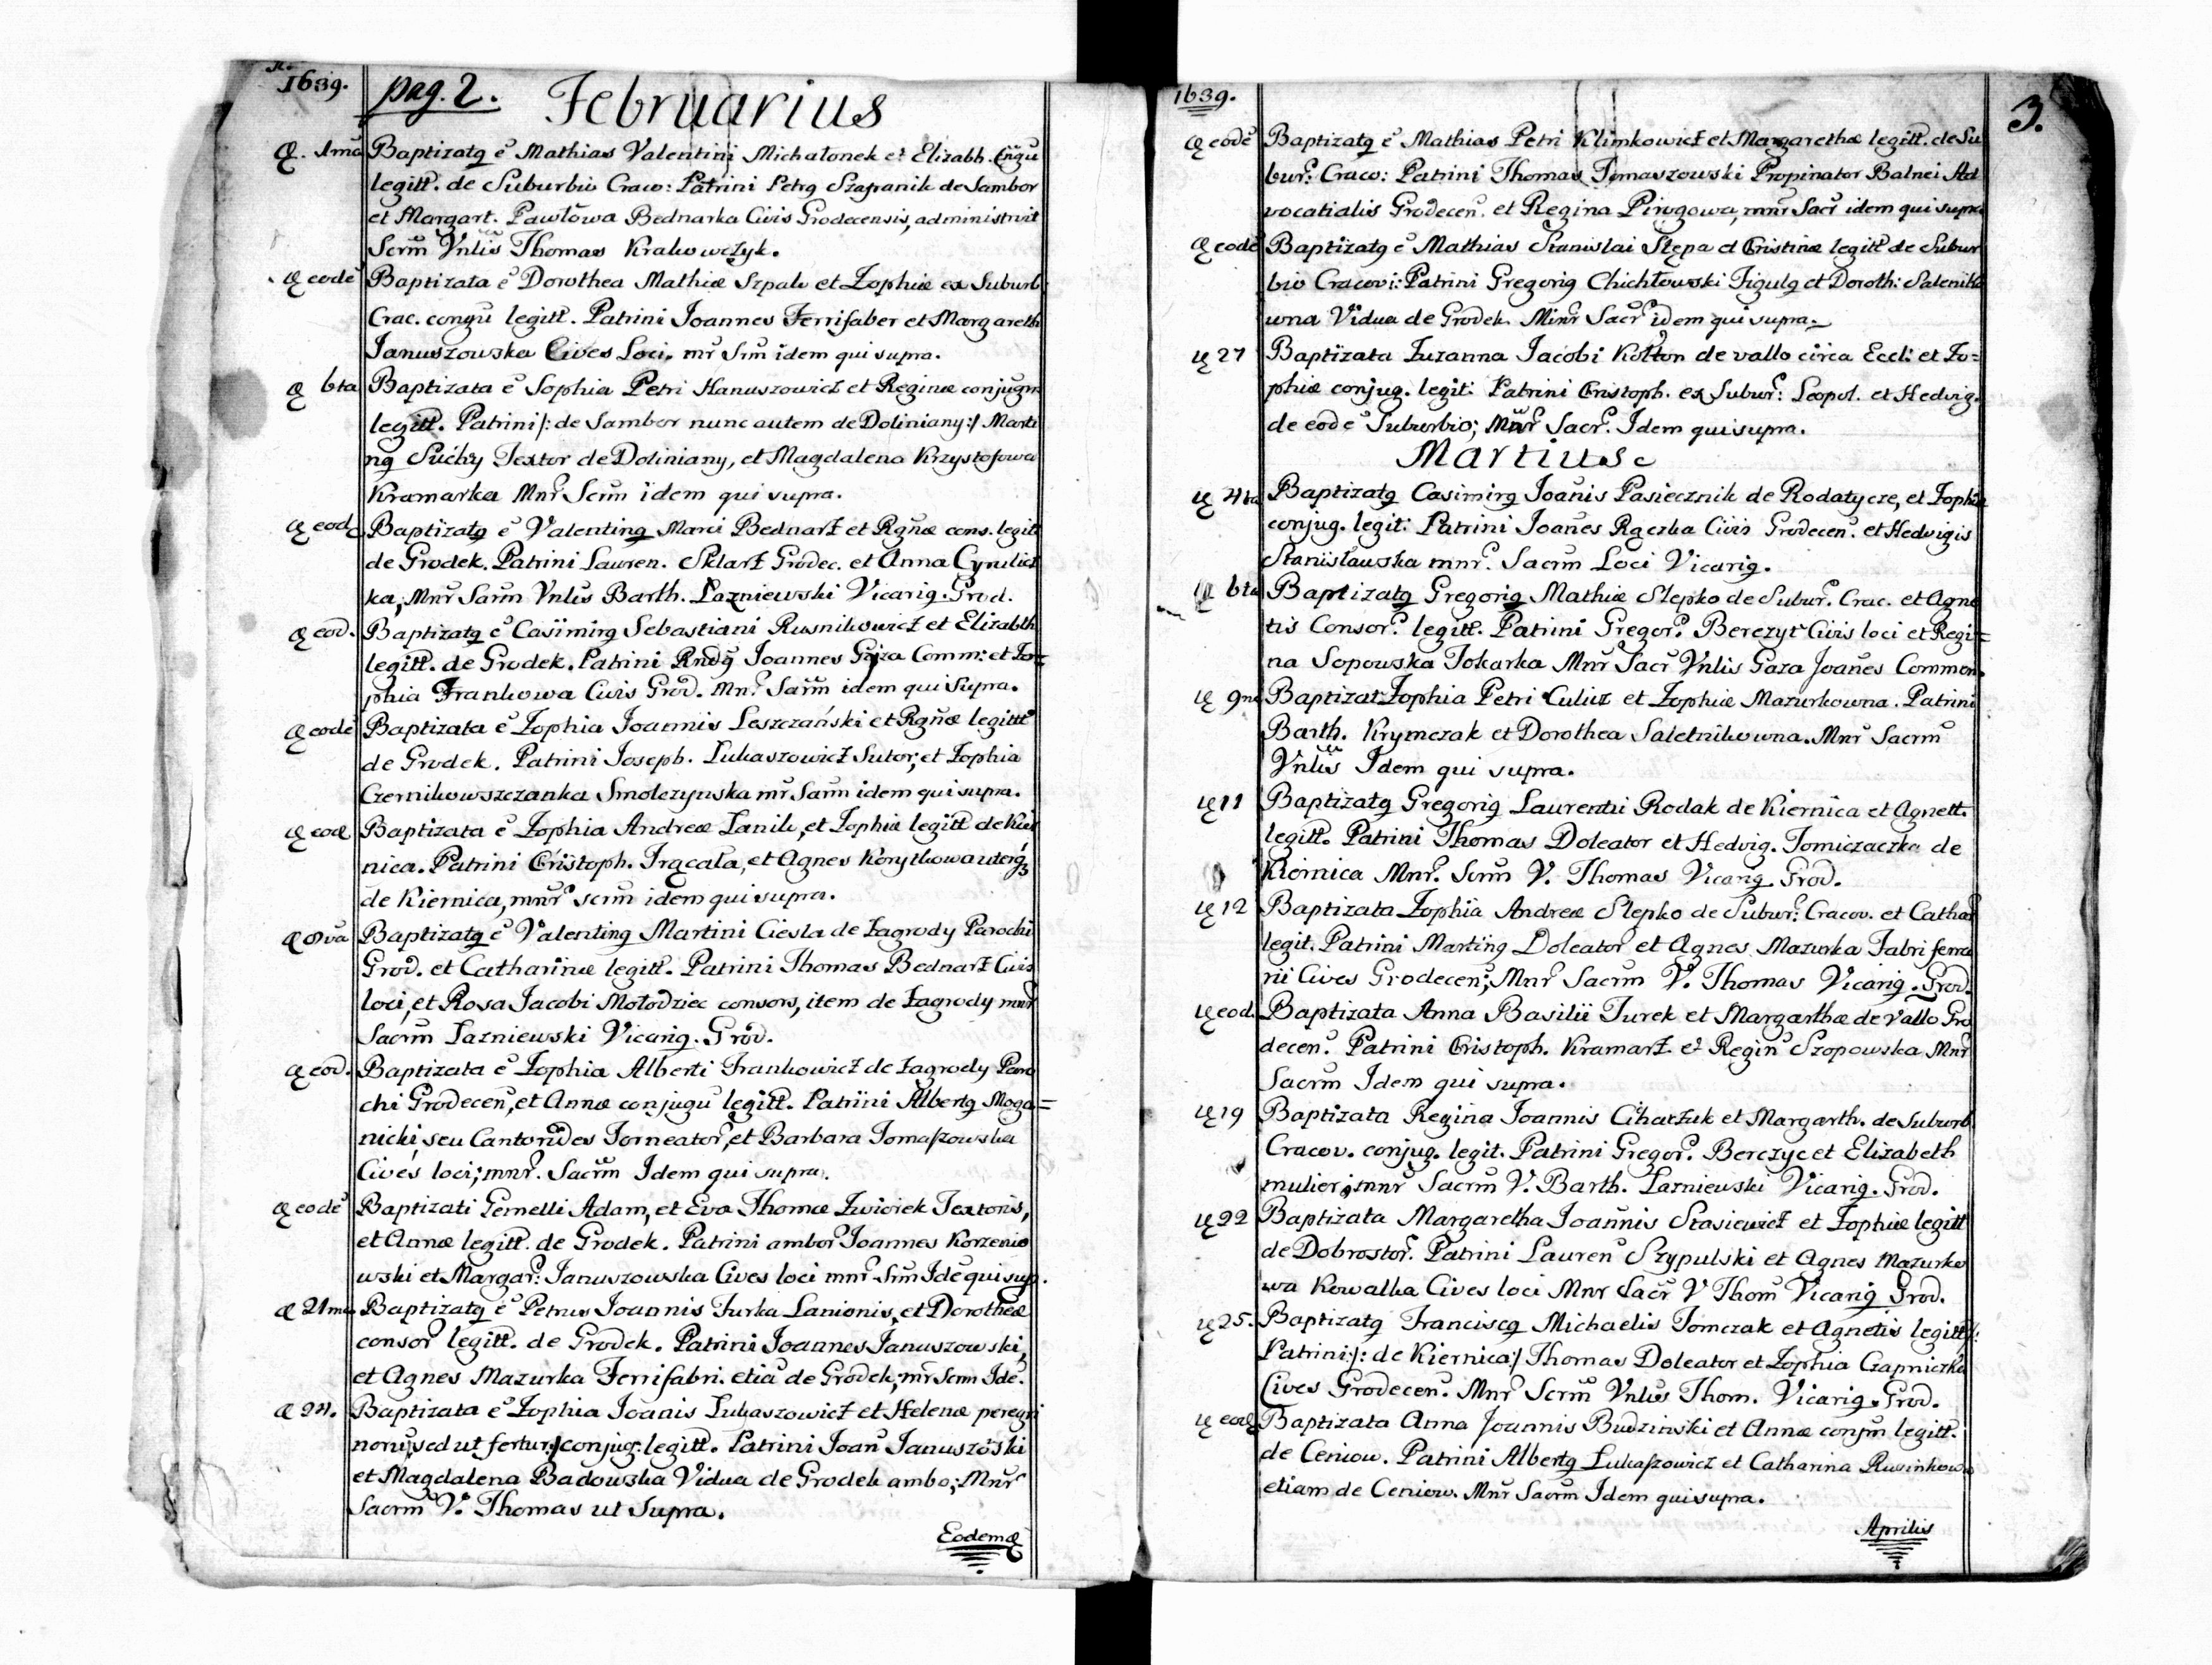 1639. pag. 2. Februarius
1ma Baptizatq ē Mathias Valentini Michałonek et Elizabh. Cūgu
legitt. de Suburbio Craco: Patrini Petrq Szapanik de Sambor
et Margart. Pawłowa Bednarka Civis Grodecensis, administrvit
Scrm̄ Vnlis Thomas Krakowczyk.
eodē Baptizata ē Dorothea Mathiæ Szpak et Zophiæ ex Suburb:
Crac. congu legitt. Patrini Joannes Ferrifaber et Margareth
Januszowska Cives Loci, mr̄ Srm̄ idem qui supra.
6ta Baptizata ē Sophia Petri Hanuszowicz et Reginæ conjugm
legitt. Patrini /: de Sambor nunc autem de Doliniany :/ Marti
nq Suchy Textor de Doliniany, et Magdalena Krzysztofowa
Kramarka Mnr̄ Scrm̄ idem qui supra.
eod Baptizatq ē Valentinq Marci Bednarz et Rgnæ cons. legitt
de Grodek. Patrini Lauren. Sklarz Grodec. et Anna Cyrulicz
ka, Mnr̄ Sarm̄ Vnlis Barth. Lazniewski Vicariq. Grod.
eod. Baptizatq ē Casimirq Sebastiani Rusnikowicz et Elizabth
legitt. de Grodek. Patrini Rndq Joannes Gyza Comm: et Zo=
phia Frankowa Civis Grod. Mnr̄ Sarm̄ idem qui Supra.
eodē Baptizata ē Zophia Joannis Leszczański et Rgnæ legittt
de Grodek. Patrini Joseph. Lukaszowicz Sutor, et Zophia
Czernikowszczanka Smolczynska mr̄ Sarm̄ idem qui supra.
eod Baptizata ē Zophia Andreæ Lanik, et Zophiæ legitt de Kier
nica. Patrini Cristoph. Trącała, et Agnes Korytkowa uterq3
de Kiernica, mnr̄ scrm̄ idem qui supra.
8va Baptizatq ē Valentinq Martini Ciesla de Zagrody Parochi
Grod. et Catharinæ legitt. Patrini Thomas Bednarz Civis
loci, et Rosa Jacobi Mołodziec consors, item de Zagrody mnr̄
Sacrm̄ Lazniewski Vicariq. Grod.
eod. Baptizata ē Zophia Alberti Frankowicz de Zagrody Paro
chi Grodecen̄, et Annæ conjugu legitt. Patrini Albertq Moga=
nicki, seu Cantorides Torneator, et Barbara Tomaszowska
Cives loci; mnr̄. Sacrm̄ Idem qui supra.
eodē Baptizati Gemelli Adam, et Eva Thomæ Zwiorek Textoris,
et Annæ legitt. de Grodek. Patrini ambor Joannes Korzenio
wski et Margar: Januszowska Cives loci mnr̄ Srm̄ Idē qui sup.
21ma Baptizatq ē Petrus Joannis Turka Lanionis, et Dorotheæ
consor legitt. de Grodek. Patrini Joannes Januszowski,
et Agnes Mazurka Ferrifabri. etiā de Grodek, mr̄ Scrm Idē.
24. Baptizata ē Zophia Joanis Lukaszowicz et Helenæ peregri
noru, sed ut fertur :/ conjug. legitt. Patrini Joan̄ Januszoski
et Magdalena Badowska Vidua de Grodek ambo; Mnr̄
Sacrm̄ V. Thomas ut Supra.
Eodem
1639. 3.
eodē Baptizatq ē Mathias Petri Klimkowicz et Margarethæ legitt. de Su
bur: Craco: Patrini Thomas Tomaszowski Propinator Balnei Ad
vocatialis Grodecen̄. et Regina Pirogowa, mnr̄ Sacr̄ idem qui supra
eodē Baptizatq ē Mathias Stanislai Stępa et Cristinæ legitt de Subur
bio Cracovi: Patrini Gregoriq Chichłowski Figulq et Doroth: Saletnik
owna Vidua de Grodek. Minr̄ Sacr̄ idem qui supra.
27 Baptizata Zuzanna Jacobi Kołton de vallo circa Eccl: et Zo=
phiæ conjug. legit: Patrini Cristoph. ex Subur: Leopol. et Hedvig.
de eodē Suburbio; Mnr̄ Sacr. Idem qui supra.
Martius
4ta Baptizatq Casimirq Joānis Pasiecznik de Rodatycze, et Zophiæ
conjug. legit: Patrini Joānes Rączka Civis Grodecen̄. et Hedvigis
Stanisławska mnr̄. Sacrm̄ Loci Vicariq.
6ta Baptizatq Gregoriq Mathiæ Slepko de Subur. Crac. et Agne
tis Consor. legitt. Patrini Gregor. Berezyc Civis loci et Regi=
na Sopowska Tokarka Mnr̄ Sacr̄ Vnlis Gaza Joānes Commen.
9na Baptizat Zophia Petri Culicz et Zophiæ Mazurkowna. Patrini
Barth. Krymczak et Dorothea Saletnikowna. Mnr̄ Sacrm̄
Vnlis Idem qui supra.
11 Baptizatq Gregoriq Laurentii Rodak de Kiernica et Agnett.
legitt. Patrini Thomas Doleator et Hedvig. Tomiczaczka de
Kiernica Mnr̄. Scrm̄ V. Thomas Vicariq. Grod.
12 Baptizata Zophia Andreæ Slepko de Subur: Cracov. et Cathar
legit. Patrini Martinq Doleator et Agnes Mazurka Fabri ferra
rii Cives Grodecen̄; Mnr̄ Sacrm̄ V. Thomas Vicariq. Grod.
eod. Baptizata Anna Basilii Turek et Margarthæ de Vallo Gro
decen̄. Patrini Cristoph. Kramarz et Regin̄ Szopowska Mnr̄
Sacrm Idem qui supra.
19 Baptizata Regina Joannis Ciharzuk et Margarth. de Suburb.
Cracov. conjug. legit. Patrini Gregor. Berczyc et Elizabeth
mulier; mnr̄ Sacrm̄ V. Barth. Lazniewski Vicariq. Grod.
22 Baptizata Margaretha Joannis Stasiewicz et Zophiæ legitt
de Dobrostor. Patrini Lauren̄ Szypulski et Agnes Mazurko
wa Kowalka Cives loci Mnr̄ Sacr̄ V Thom̄ Vicariq Grod.
25. Baptizatq Franciscq Michaelis Tomczak et Agnetis legitt:
Patrini :/: de Kiernica :/ Thomas Doleator et Zophia Czapniczka
Cives Grodecen̄. Mnr̄ Scrm̄ Vnlis Thom. Vicariq. Grod.
eod Baptizata Anna Joannis Budzinski et Annæ conjm legitt.
de Ceniow. Patrini Albertq Lukaszowicz et Catharina Rusinkowa
etiam de Ceniow. Mnr̄ Sacrm̄ Idem qui supra.
Aprilis